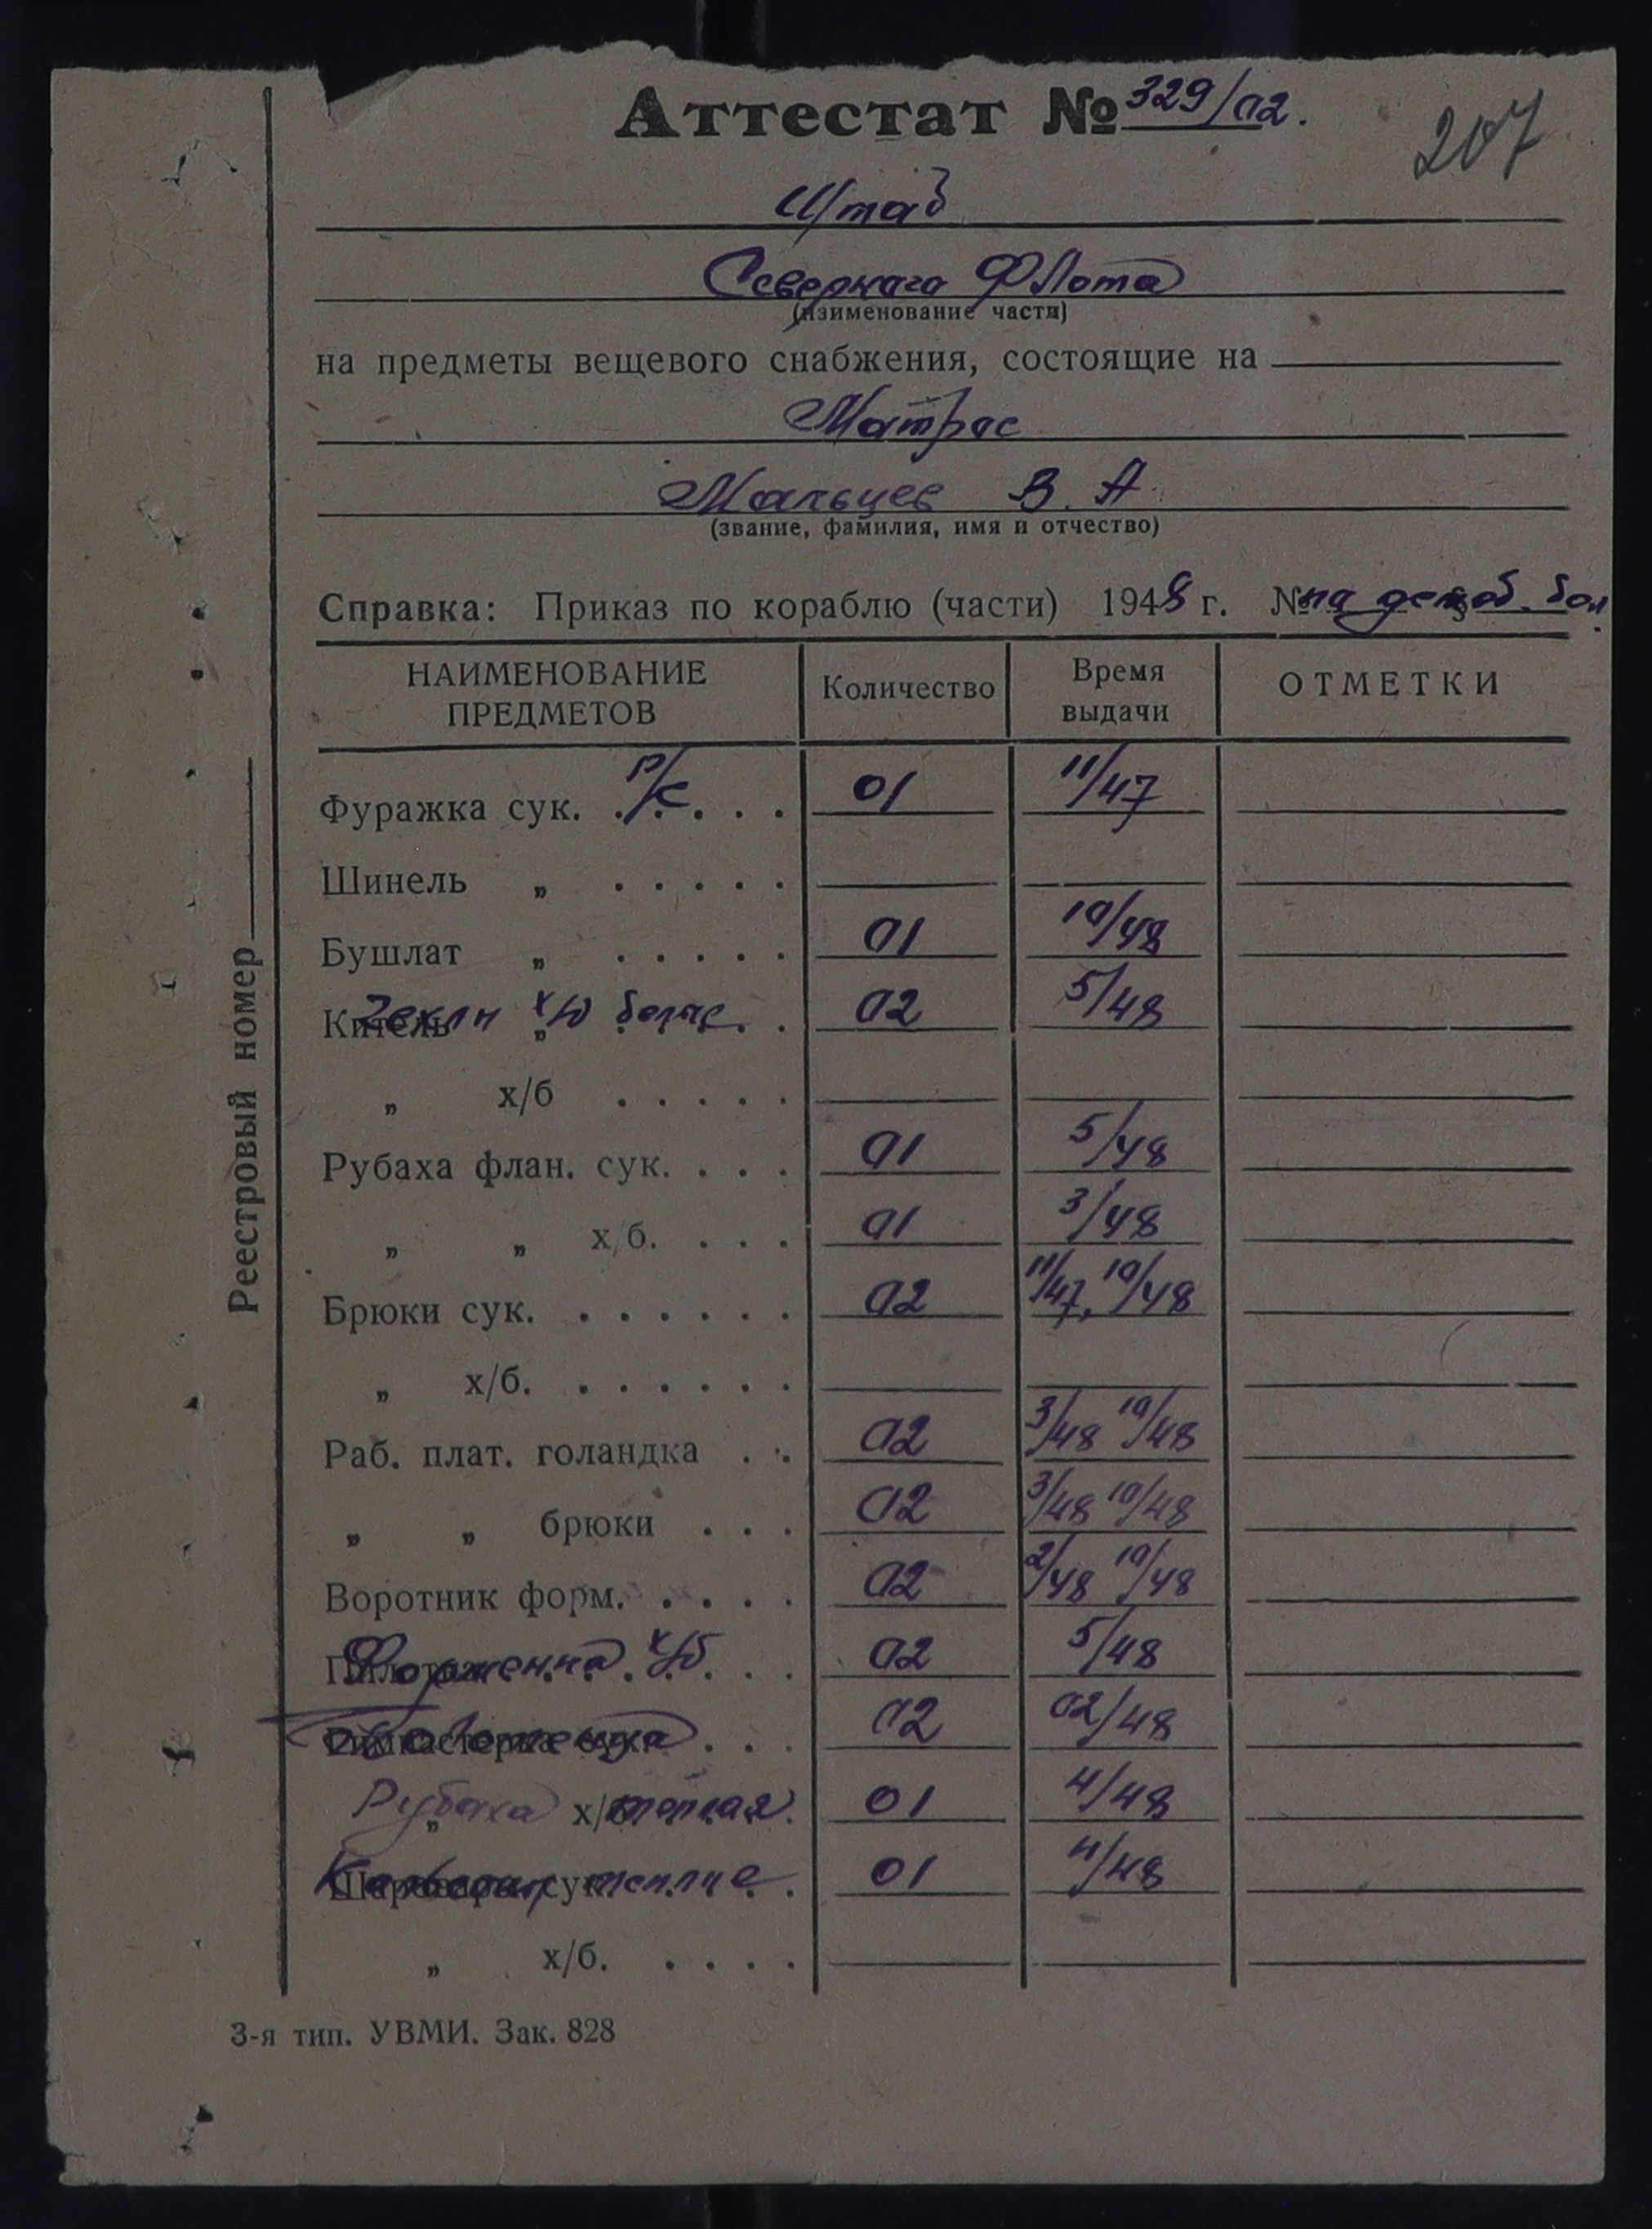 Аттестат № 329/02.
207
Штаб
Севернаго Флота
(наименование части)
на предметы вещевого снабжения, состоящие на
Матрос
Мальцев В. А.
(звание, фамилия, имя и отчество)
Справка: Приказ по кораблю (части) 1948 г. № на
НАИМЕНОВАНИЕ ПРЕДМЕТОВ Количество Время выдачи ОТМЕТКИ
Фуражка сук. р/с 01 11/47
Шинель „ . . . . .
Бушлат „ . . . . . 01 10/48
Китель „ Чехлы х/б белые 02 5/48
„ х/б . . . . .
Рубаха флан. сук. . . . 01 5/48
„ „ х/б. . . . 01 3/48
Брюки сук. . . . . . . 02 11/47, 10/48
„ х/б. . . . . . .
Раб. плат. голандка . . 02 3/48 10/48
„ „ брюки . . . 02 3/48 10/48
Воротник форм. . . . . 02 2/48 10/48
Форменка х/б 02 5/48
02 02/48
„ Рубаха х/б теплая 01 4/48
теплые 01 4/48
„ х/б. . . . .
Реестровый номер
3-я тип. УВМИ. Зак. 828